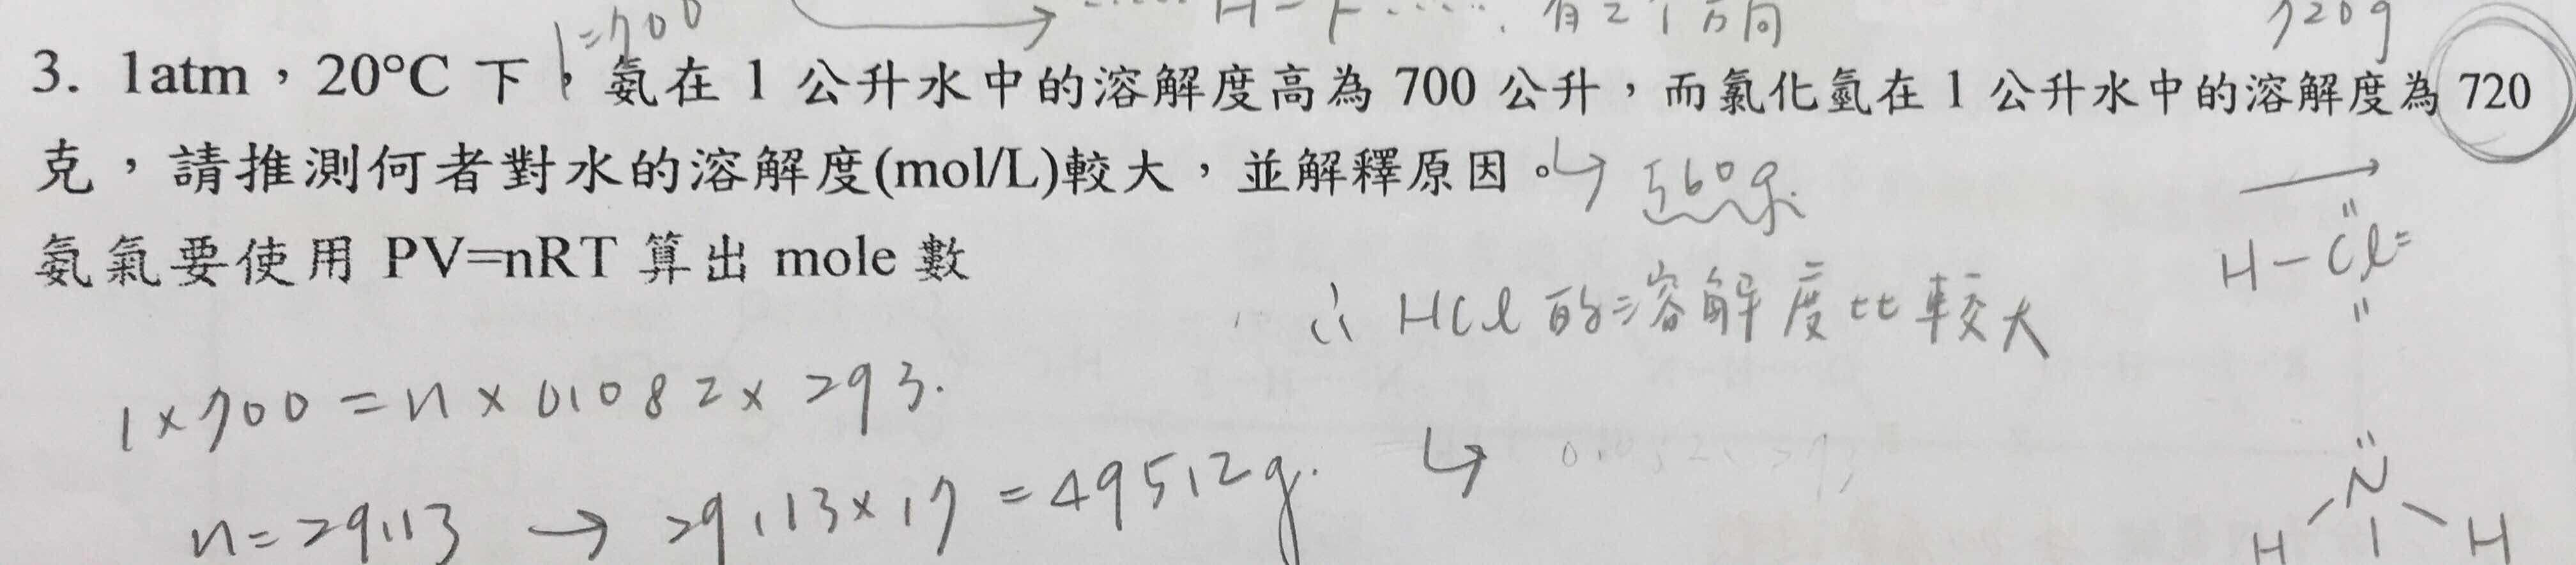 720g
1=700
H-F 有2个方向
3. 1atm，20°C 下，氨在 1 公升水中的溶解度高為 700 公升，而氯化氫在 1 公升水中的溶解度為 720
克，請推測何者對水的溶解度(mol/L)較大，並解釋原因。↳ 560g.
氨氣要使用 PV=nRT 算出 mole 數
H-Cl
∴ HCl 的溶解度比較大
1×700=n×0.082×293.
n=29.13 → 29.13×17=495.12g. ↳
N
H H